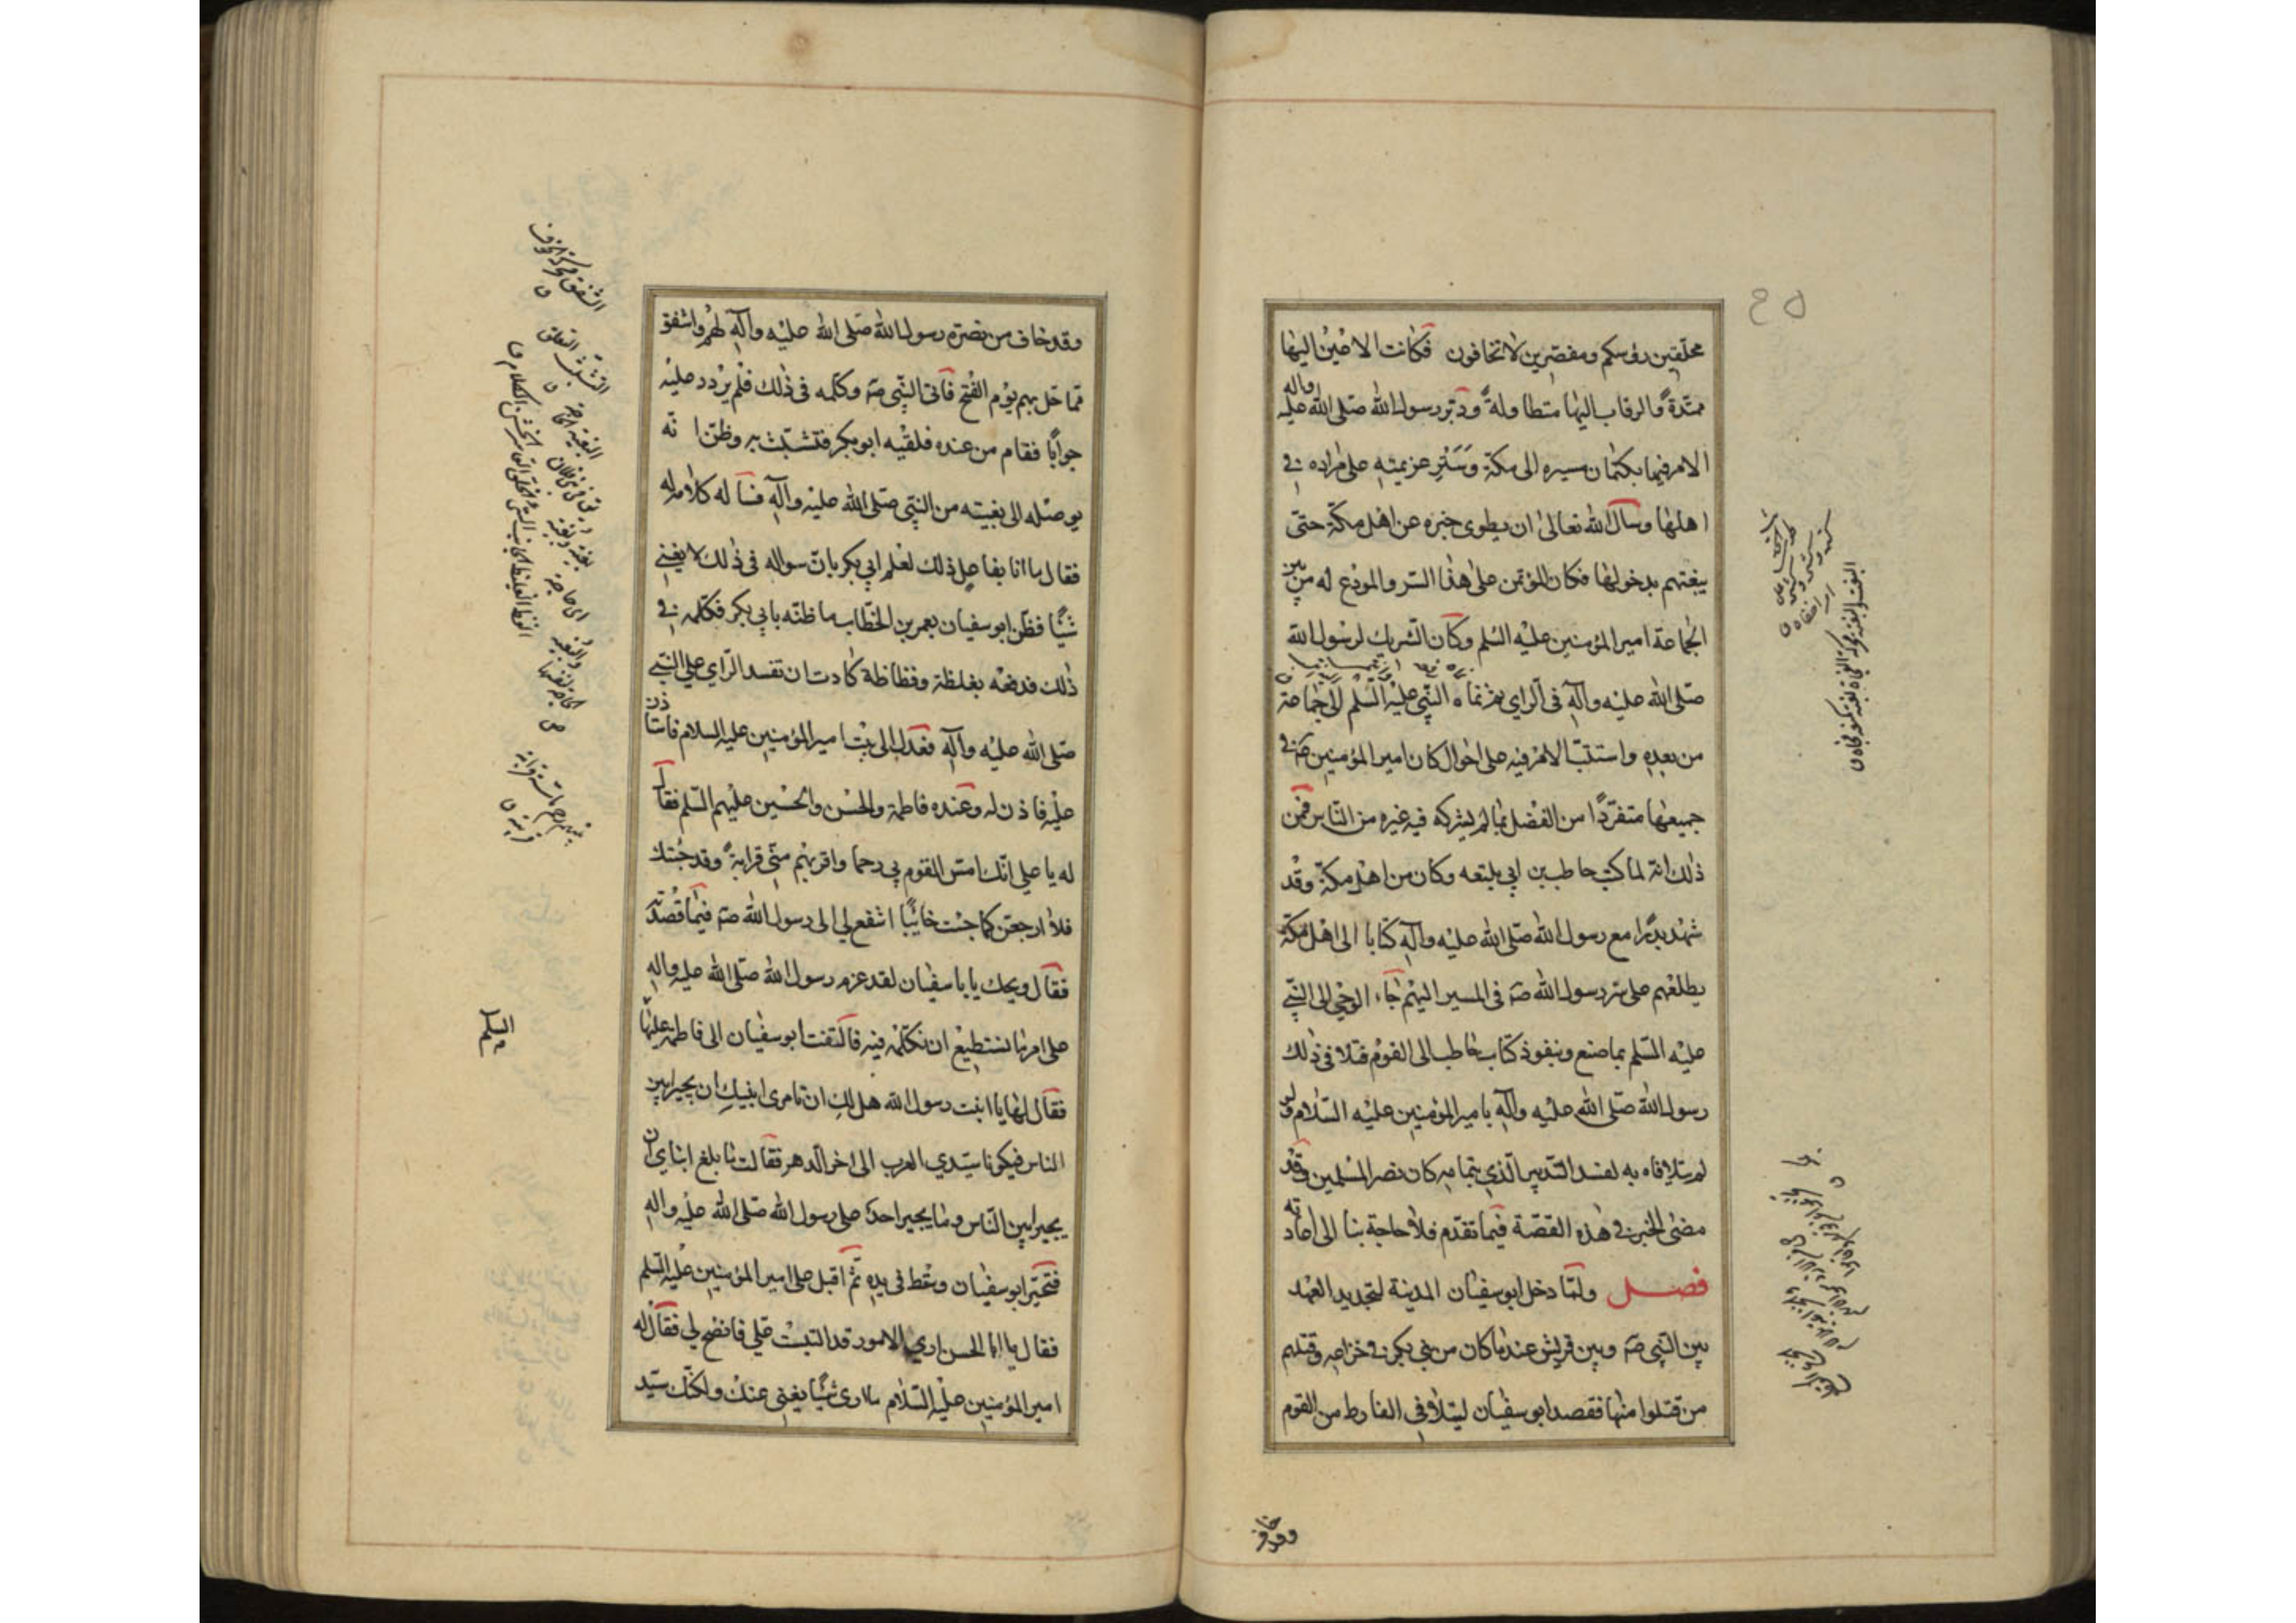 محلّقين رؤسكم ومقصّرين لا تخافون فكانت الاعين اليها
ممتدّة والرقاب اليها متطاولة ودبّر رسول الله صلى الله عليه وآله
الامر فيها بكتمان مسيره الى مكة وستر عزيمته على مراده في
اهلها وسأل الله تعالى ان يطوى خبره عن اهل مكة حتى
يبغتهم بدخولها فكان المؤتمن على هذا السر والمودع له من بين
الجماعة امير المؤمنين عليه السلم وكان الشريك لرسول الله
صلى الله عليه وآله في الراي ثم نماه النبي عليه السلم الى جماعة
من بعده واستتب الامر فيه على احوال كان امير المؤمنين في
جميعها متفردا من الفضل بما لم يشركه فيه غيره من الناس فمن
ذلك انه لما كتب حاطب بن ابي بلتعه وكان من اهل مكة وقد
شهد بدرا مع رسول الله صلى الله عليه وآله كتابا الى اهل مكة
يطلعهم على سر رسول الله صة في المسير اليهم جاء الوحي الى النبي
عليه السلم بما صنع وبنفوذ كتاب حاطب الى القوم فتلافى ذلك
رسول الله صلى الله عليه وآله بامير المؤمنين عليه السلام ولو
لم يتلافاه به لفسد التدبير الذي بتمامه كان نصر المسلمين وقد
مضى الخبر في هذه القصة فيما تقدم فلا حاجة بنا الى اعادته
فصل ولما دخل ابو سفيان المدينة لتجديد العهد
بين النبي صة وبين قريش عند ما كان من بني بكر في خزاعه وقتلهم
من قتلوا منها فقصد ابو سفيان ليتلافى الفارط من القوم
وقد خاف
وقد خاف من نصرة رسول الله صلى الله عليه وآله لهم واشفق
مما حل بهم يوم الفتح فاتى النبي صة وكلمه في ذلك فلم يردد عليه
جوابا فقام من عنده فلقيه ابو بكر فتشبث به وظن انه
يوصله الى بغيته من النبي صلى الله عليه وآله فسأله كلامه له
فقال ما انا بفاعل ذلك لعلم ابي بكر بان سواله في ذلك لا يغني
شيئا فظن ابو سفيان بعمر بن الخطاب ما ظنه بابي بكر فكلمه في
ذلك فدفعه بغلظة وفظاظة كادت ان تفسد الراي على النبي
صلى الله عليه وآله فعدل الى بيت امير المؤمنين عليه السلام فاستاذن
عليه فاذن له وعنده فاطمة والحسن والحسين عليهم السلم فقال
له يا علي انك امس القوم بي رحما واقربهم مني قرابة وقد جئتك
فلا ارجعن كما جئت خائبا اشفع لي الى رسول الله صة فيما قصدته
فقال ويحك يا با سفيان لقد عزم رسول الله صلى الله عليه واله
على امر ما نستطيع ان نكلمه فيه فالتفت ابو سفيان الى فاطمة عليها
السلم
فقال لها يا ابنت رسول الله هل لك ان تامرى ابنيك ان يجيرا بين
الناس فيكونا سيدي العرب الى اخر الدهر فقالت ما بلغ ابناي ان
يجيرا بين الناس وما يجير احد على رسول الله صلى الله عليه واله
فتحير ابو سفيان وسقط في يده ثم اقبل على امير المؤمنين عليه السلم
فقال يا ابا الحسن ارى الامور قد التبست علي فانصح لي فقال له
امير المؤمنين عليه السلام ما ارى شيئا يغنى عنك ولكنك سيد